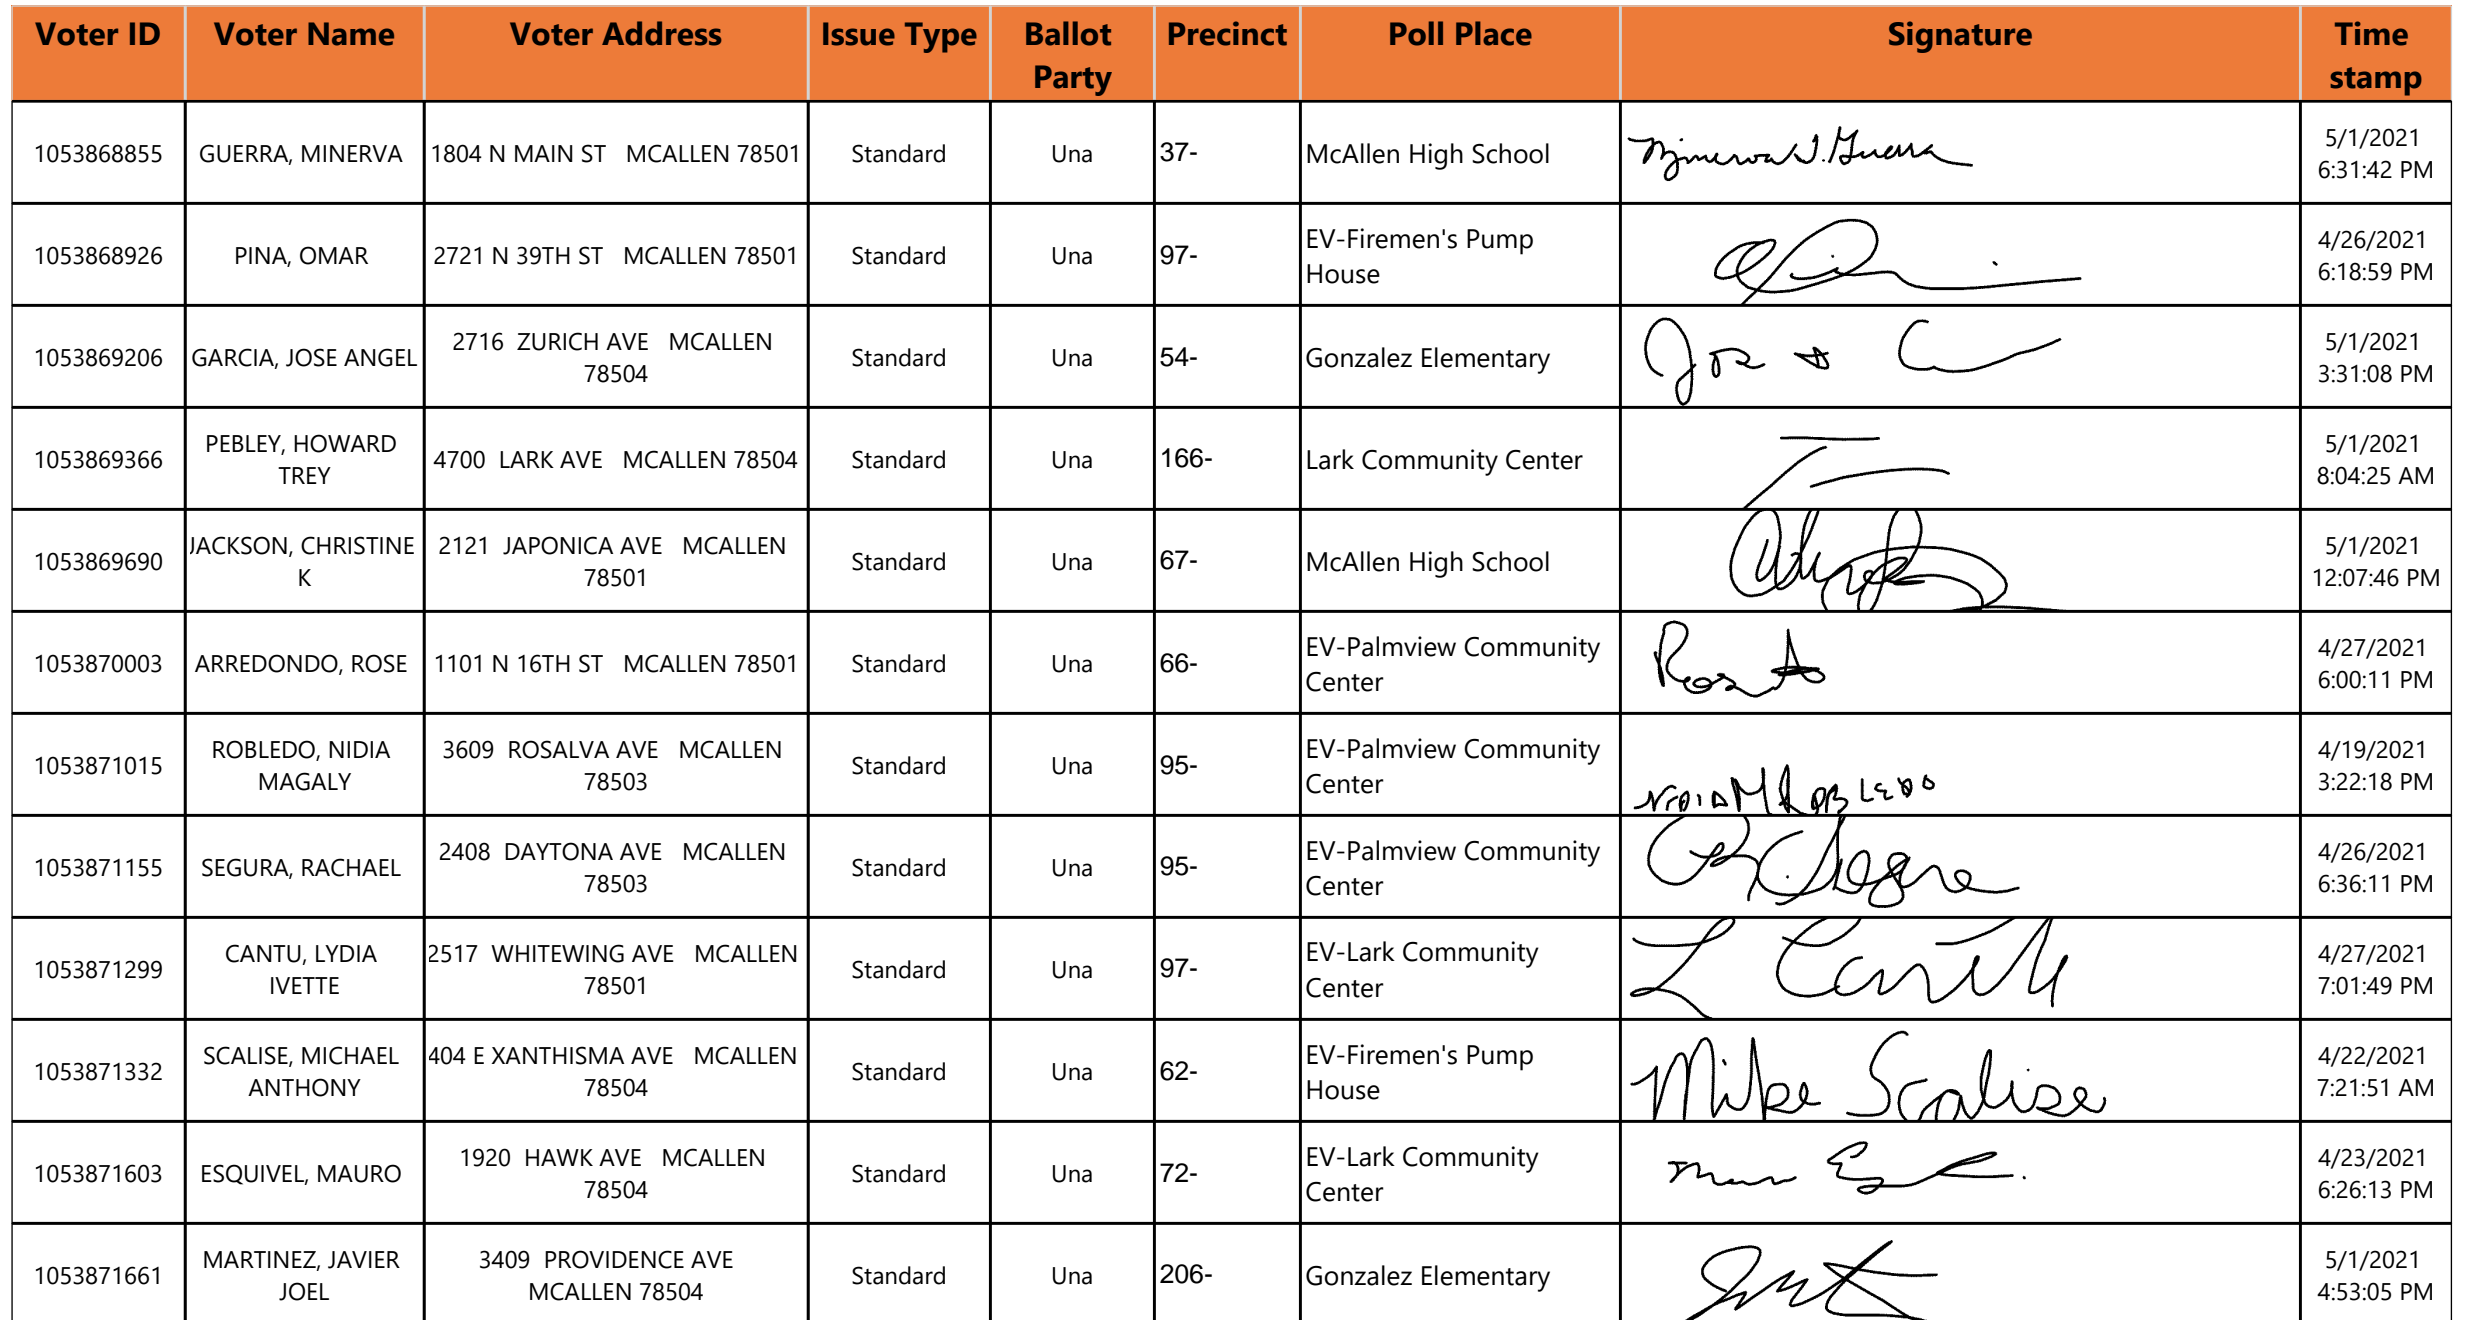 Voter ID Voter Name Voter Address Issue Type Ballot Party Precinct Poll Place Signature Time stamp
1053868855 GUERRA, MINERVA 1804 N MAIN ST MCALLEN 78501 Standard Una 37- McAllen High School Minerva I. Guerra 5/1/2021 6:31:42 PM
1053868926 PINA, OMAR 2721 N 39TH ST MCALLEN 78501 Standard Una 97- EV-Firemen's Pump House 4/26/2021 6:18:59 PM
1053869206 GARCIA, JOSE ANGEL 2716 ZURICH AVE MCALLEN 78504 Standard Una 54- Gonzalez Elementary 5/1/2021 3:31:08 PM
1053869366 PEBLEY, HOWARD TREY 4700 LARK AVE MCALLEN 78504 Standard Una 166- Lark Community Center 5/1/2021 8:04:25 AM
1053869690 JACKSON, CHRISTINE K 2121 JAPONICA AVE MCALLEN 78501 Standard Una 67- McAllen High School 5/1/2021 12:07:46 PM
1053870003 ARREDONDO, ROSE 1101 N 16TH ST MCALLEN 78501 Standard Una 66- EV-Palmview Community Center 4/27/2021 6:00:11 PM
1053871015 ROBLEDO, NIDIA MAGALY 3609 ROSALVA AVE MCALLEN 78503 Standard Una 95- EV-Palmview Community Center NIDIA M ROBLEDO 4/19/2021 3:22:18 PM
1053871155 SEGURA, RACHAEL 2408 DAYTONA AVE MCALLEN 78503 Standard Una 95- EV-Palmview Community Center 4/26/2021 6:36:11 PM
1053871299 CANTU, LYDIA IVETTE 2517 WHITEWING AVE MCALLEN 78501 Standard Una 97- EV-Lark Community Center L Cantu 4/27/2021 7:01:49 PM
1053871332 SCALISE, MICHAEL ANTHONY 404 E XANTHISMA AVE MCALLEN 78504 Standard Una 62- EV-Firemen's Pump House Mike Scalise 4/22/2021 7:21:51 AM
1053871603 ESQUIVEL, MAURO 1920 HAWK AVE MCALLEN 78504 Standard Una 72- EV-Lark Community Center 4/23/2021 6:26:13 PM
1053871661 MARTINEZ, JAVIER JOEL 3409 PROVIDENCE AVE MCALLEN 78504 Standard Una 206- Gonzalez Elementary 5/1/2021 4:53:05 PM